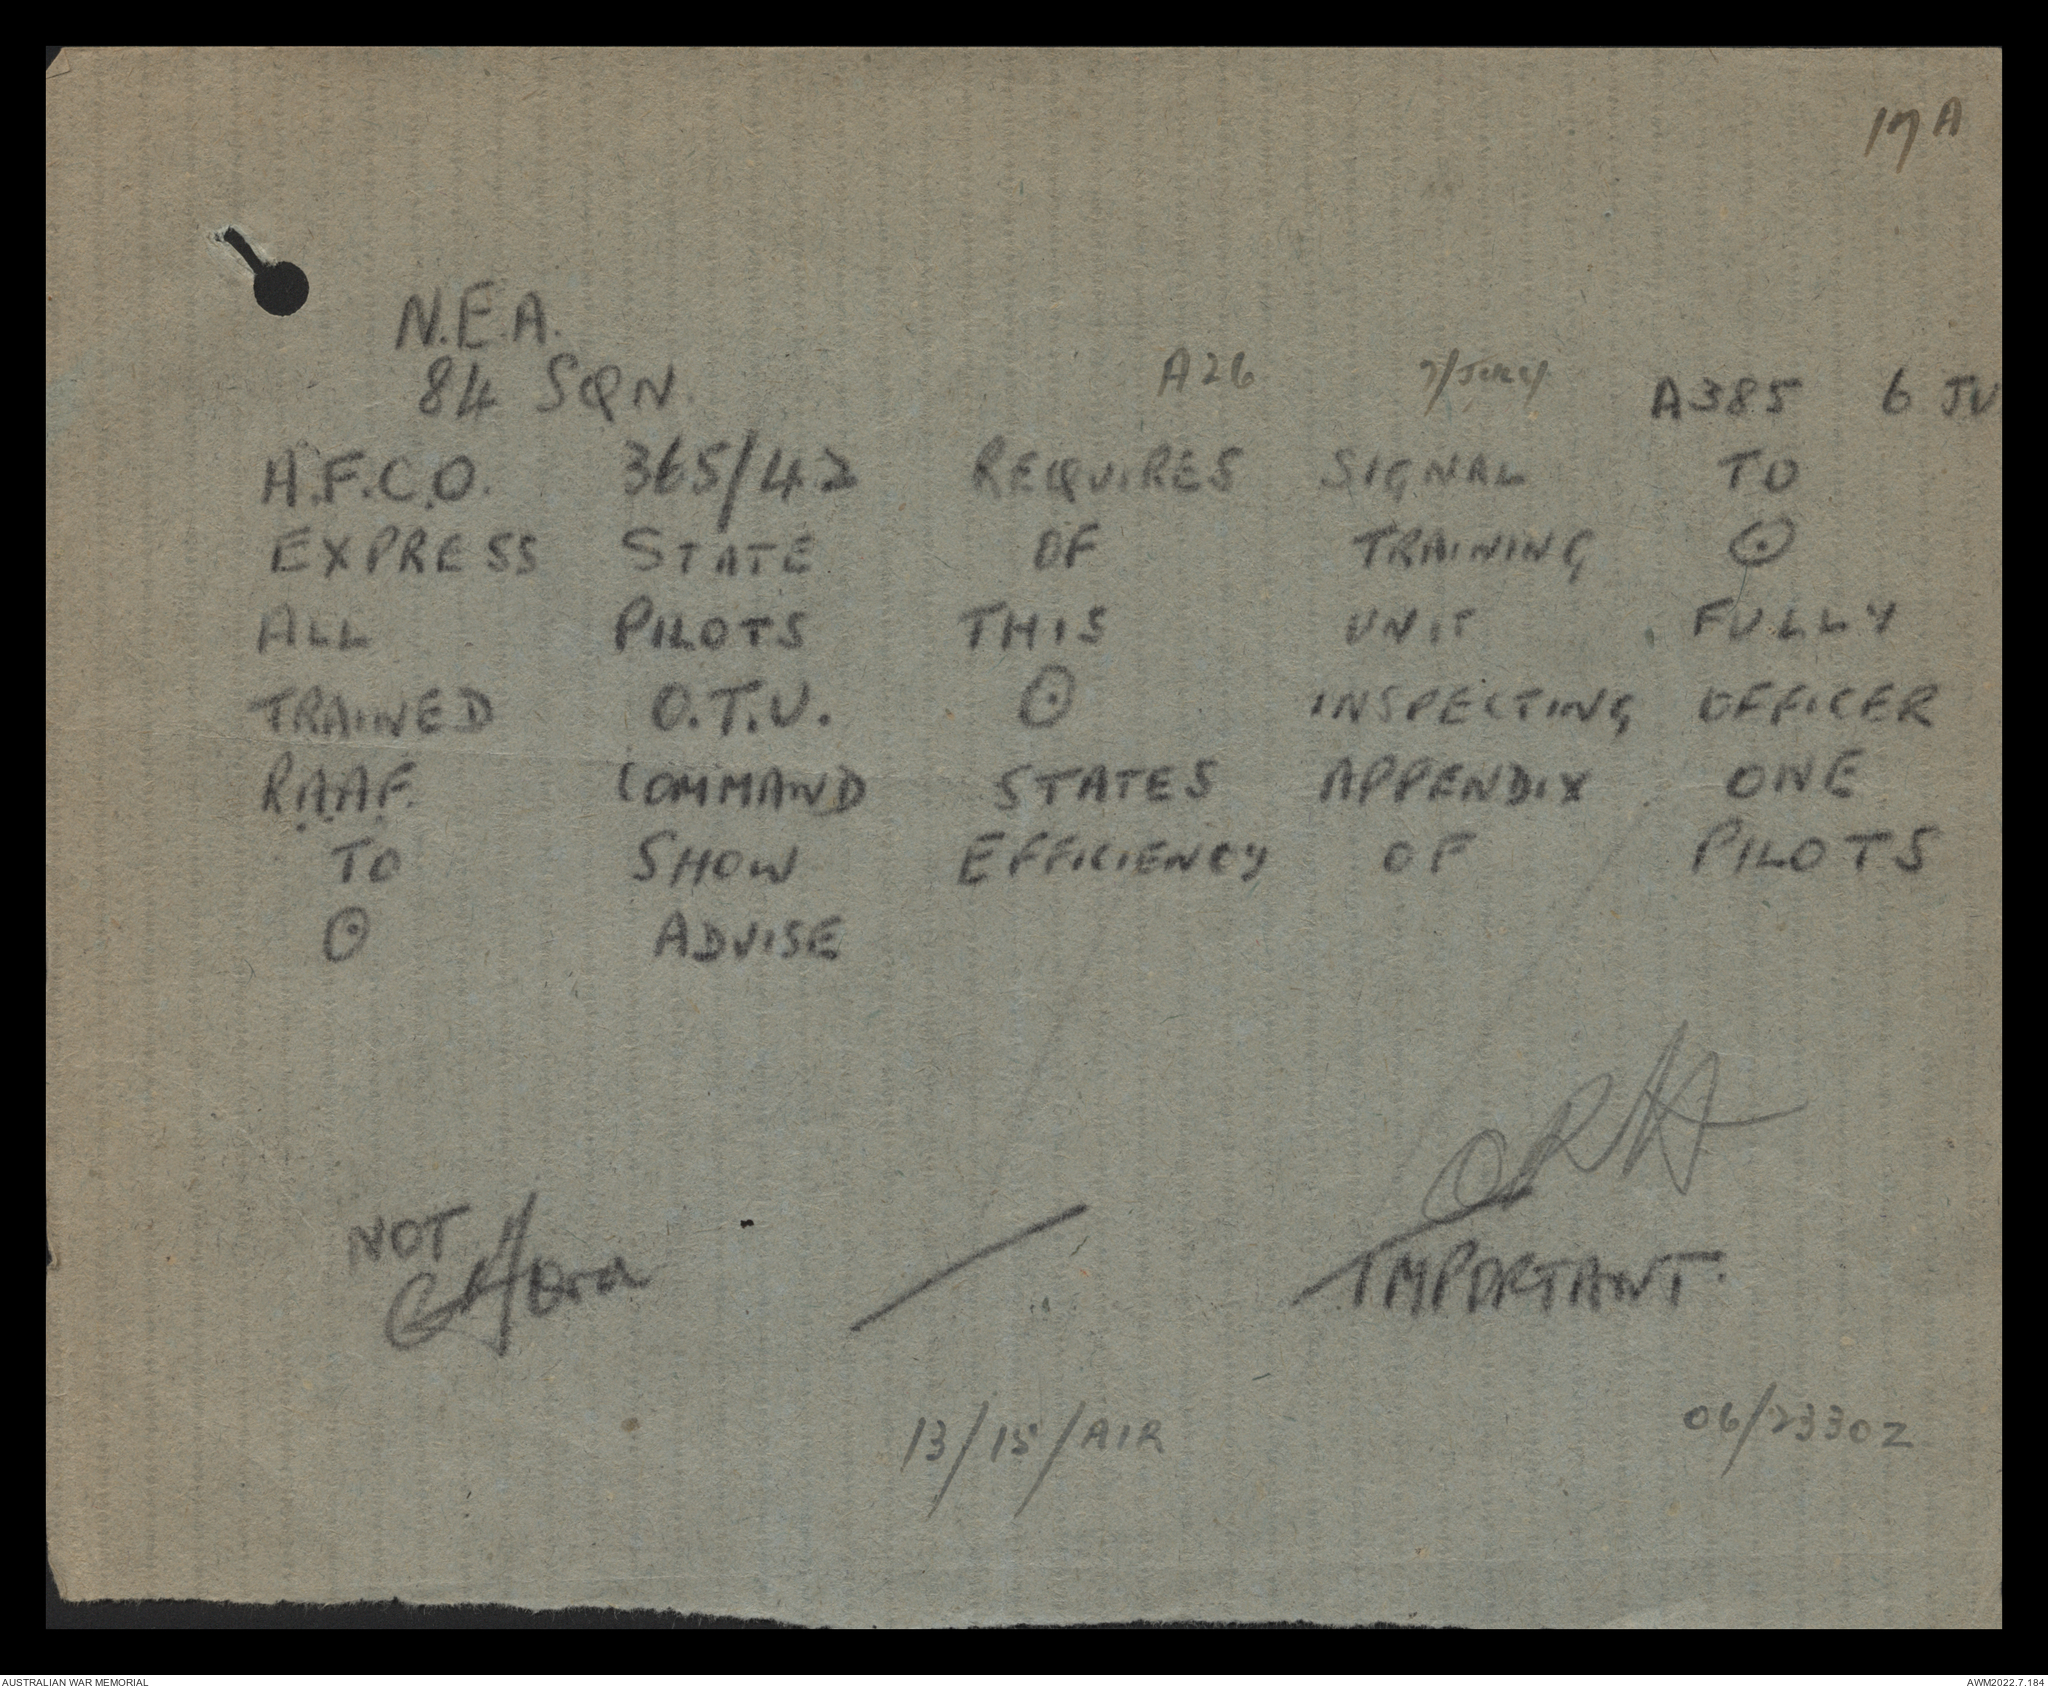 17A
N.E.A.
84 SQN. A26 7/JULY A385 6 JU
A.F.C.O. 365/42 REQUIRES SIGNAL TO
EXPRESS STATE OF TRAINING ⊙
ALL PILOTS THIS UNIT FULLY
TRAINED O.T.U. ⊙ INSPECTING OFFICER
R.A.A.F. COMMAND STATES APPENDIX ONE
TO SHOW EFFICIENCY OF PILOTS
⊙ ADVISE
NOT IMPORTANT.
13/15/AIR 06/2330Z
AUSTRALIAN WAR MEMORIAL AWM2022.7.184